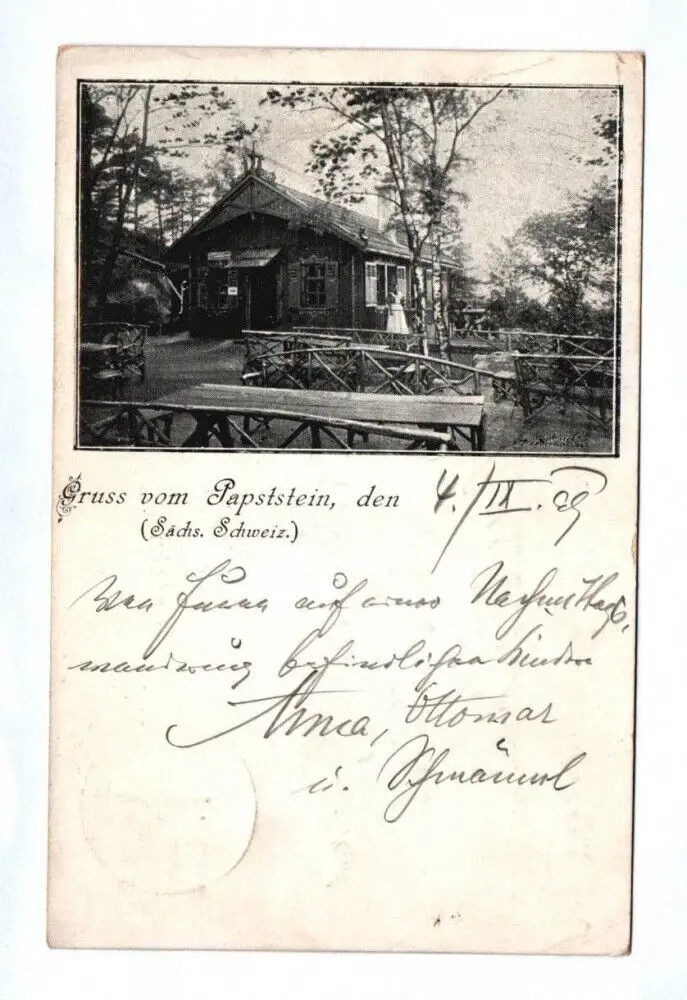 Gruss vom Papststein, den 4./IX. 09
(Sächs. Schweiz.)
Von Ihren auf einer Nachmittags-
wanderung befindlichen Kindern
Anna, Ottomar
u.